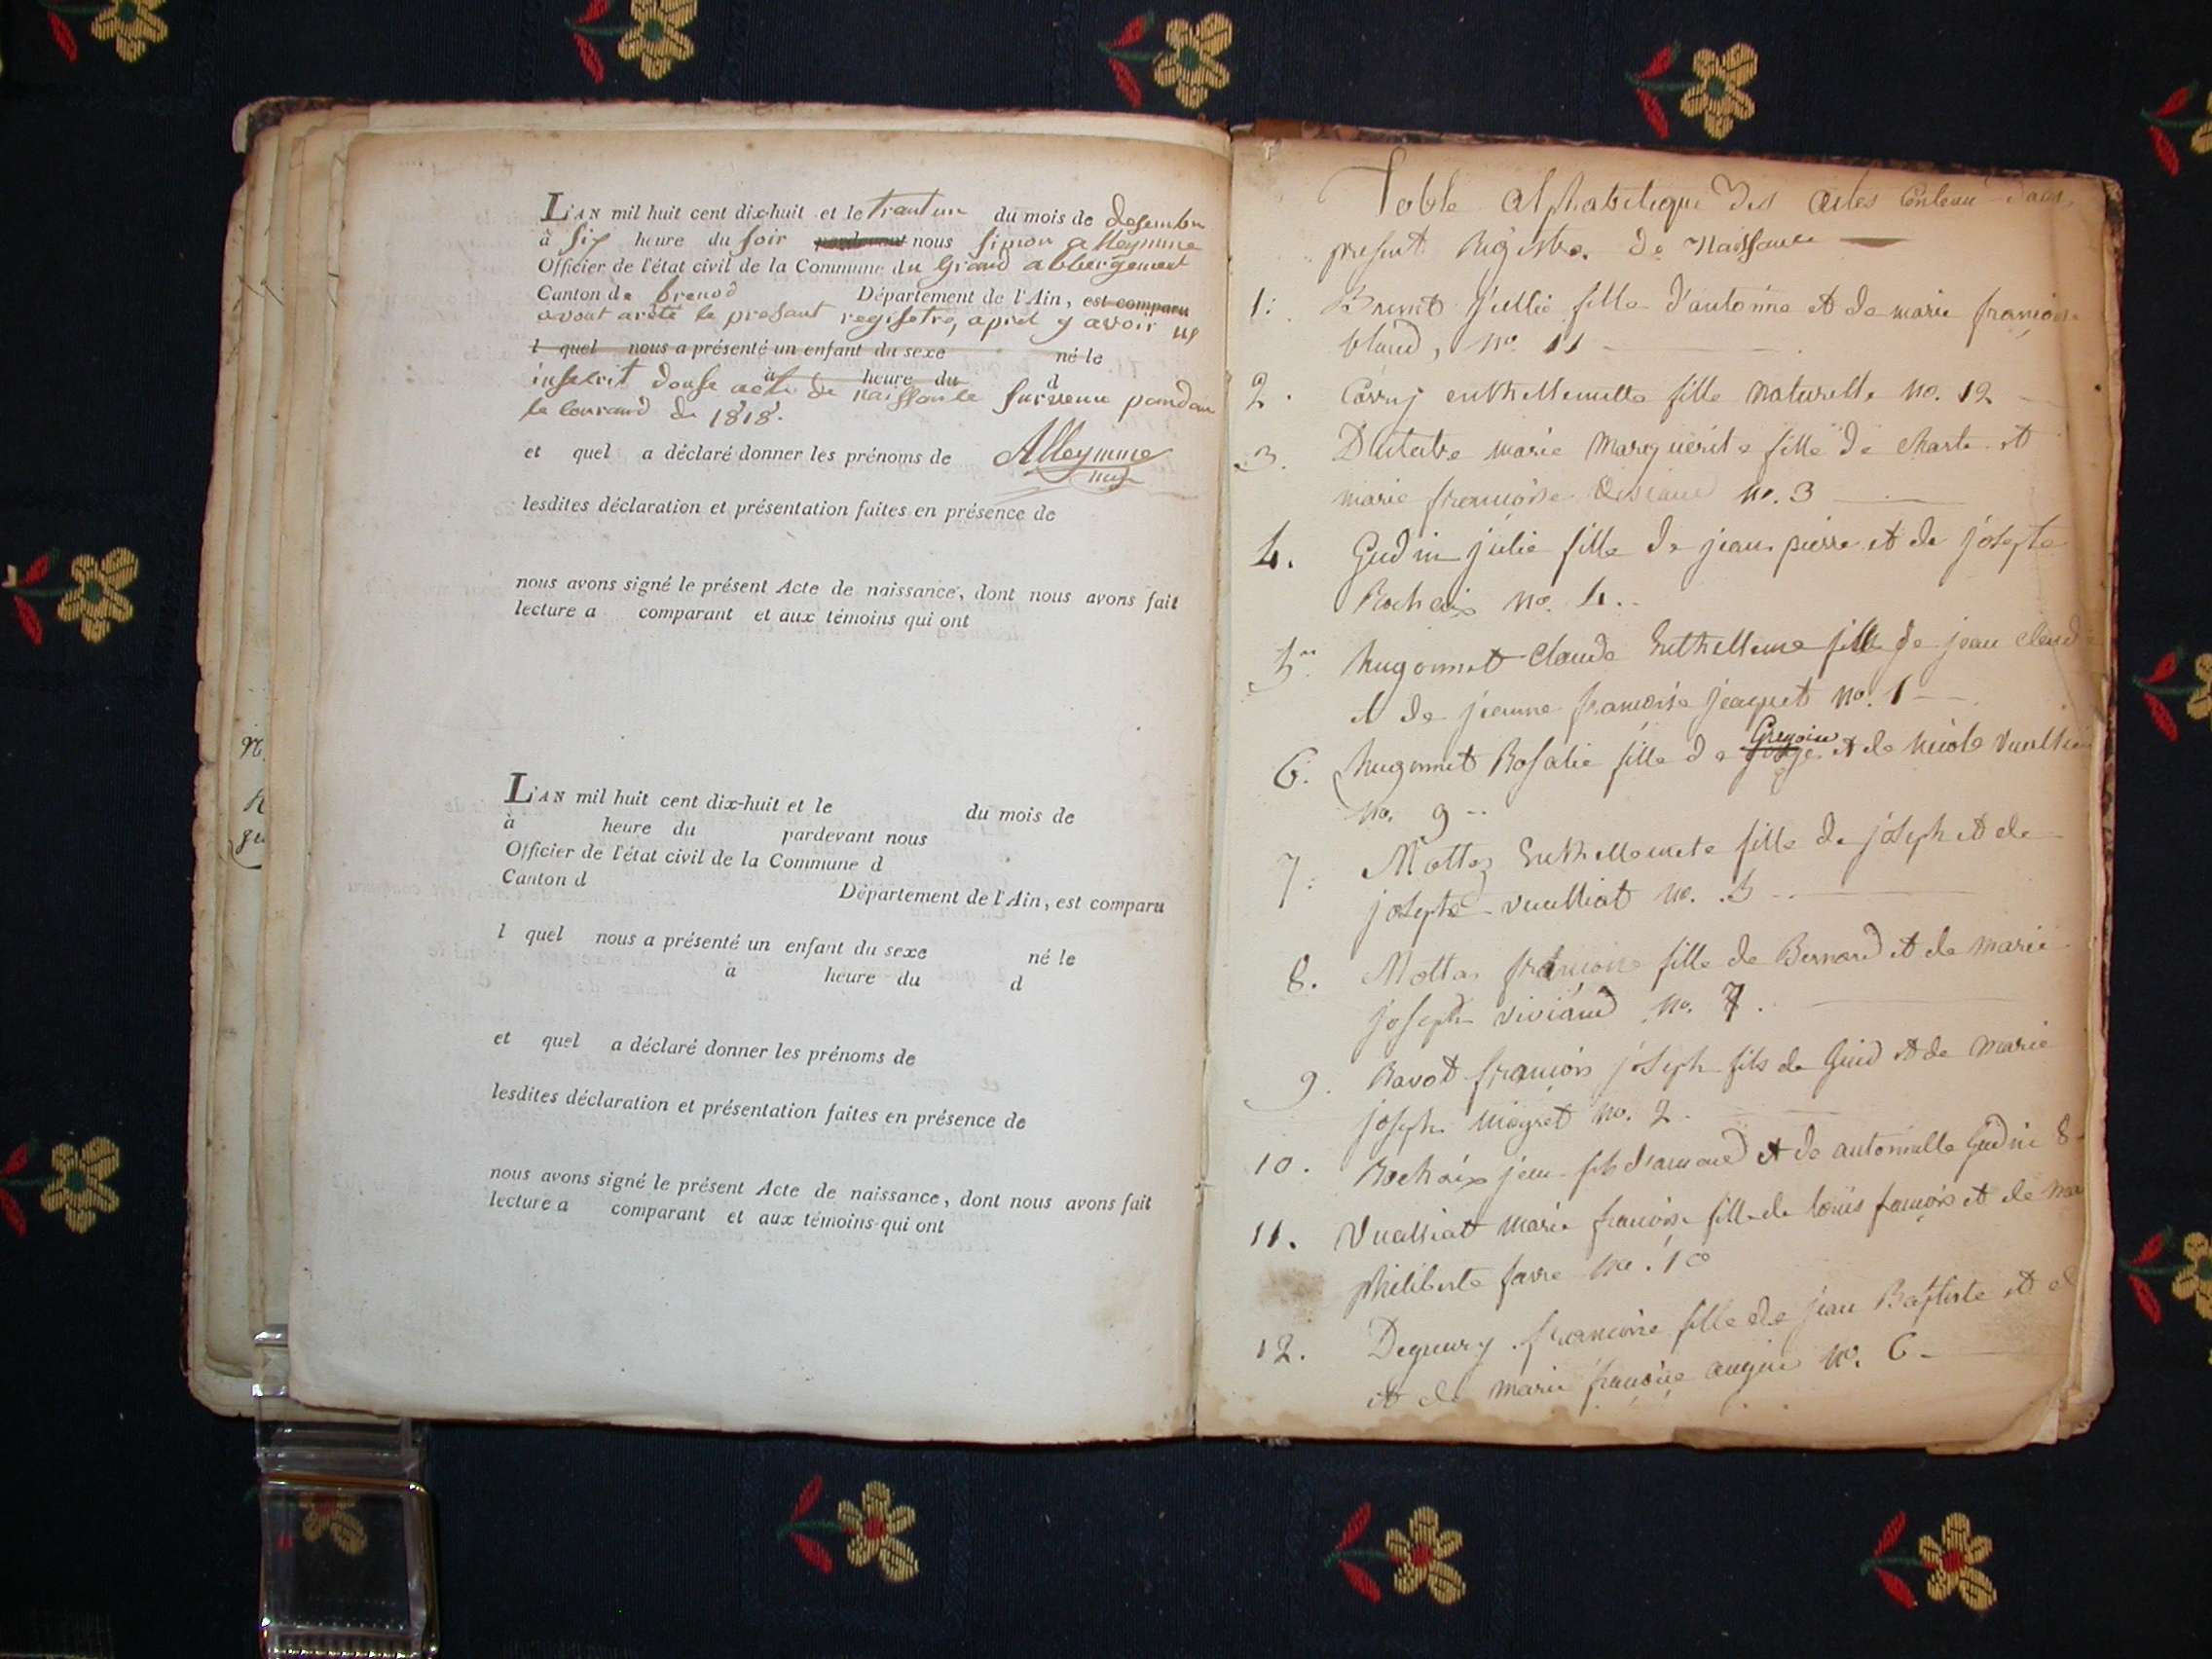 L'AN mil huit cent dix-huit et le trantun du mois de desembre
à six heure du soir pardevant nous simon alleymme
Officier de l'état civil de la Commune du Grand abbergement
Canton de brenod Département de l'Ain, est comparu
avont arété le presant registre, apret y avoir
l quel nous a présenté un enfant du sexe né le
à heure du d
inscrit douse acte de naissance survenu pandan
le courand de 1818.
et quel a déclaré donner les prénoms de Alleymme
lesdites déclaration et présentation faites en présence de
nous avons signé le présent Acte de naissance, dont nous avons fait
lecture a comparant et aux témoins qui ont
L'AN mil huit cent dix-huit et le du mois de
à heure du pardevant nous
Officier de l'état civil de la Commune d
Canton d Département de l'Ain, est comparu
l quel nous a présenté un enfant du sexe né le
à heure du d
et quel a déclaré donner les prénoms de
lesdites déclaration et présentation faites en présence de
nous avons signé le présent Acte de naissance, dont nous avons fait
lecture a comparant et aux témoins qui ont
Table alphabetique des actes contenu dans
present registre de Naissance
1. Brunet jullie fille d'antoine et de marie francoise
bland, no. 11
2. Carry enthellemette fille naturelle no. 12
3. marie Marguerite fille de charle et
marie francoise no. 3
4. Gudin julie fille de jean pierre et de josepte
Rochaix no. 4.
5. hugonnet Claude Enthelleme fille de jean claude
et de jeanne francoise jeaquet no. 1
6. hugonnet Rosalie fille de Gregoire et de Nicole Vualliat
no. 9
7. Mottaz Enthellemete fille de joseph et de
josepte vualliat no. 5
8. Mottaz francoise fille de Bernard et de marie
joseph viviand no. 7.
9. Ravot françois joseph fils de Guid et de marie
joseph no. 2.
10. Rochaix jean fils d'armand et de antoinette Gudin 8
11. Vualliat marie francoise fille de louis françois et de
philiberte favre no. 10
12. Deguerry francoise fille de jean Baptiste et d
et de marie francoise augin no. 6